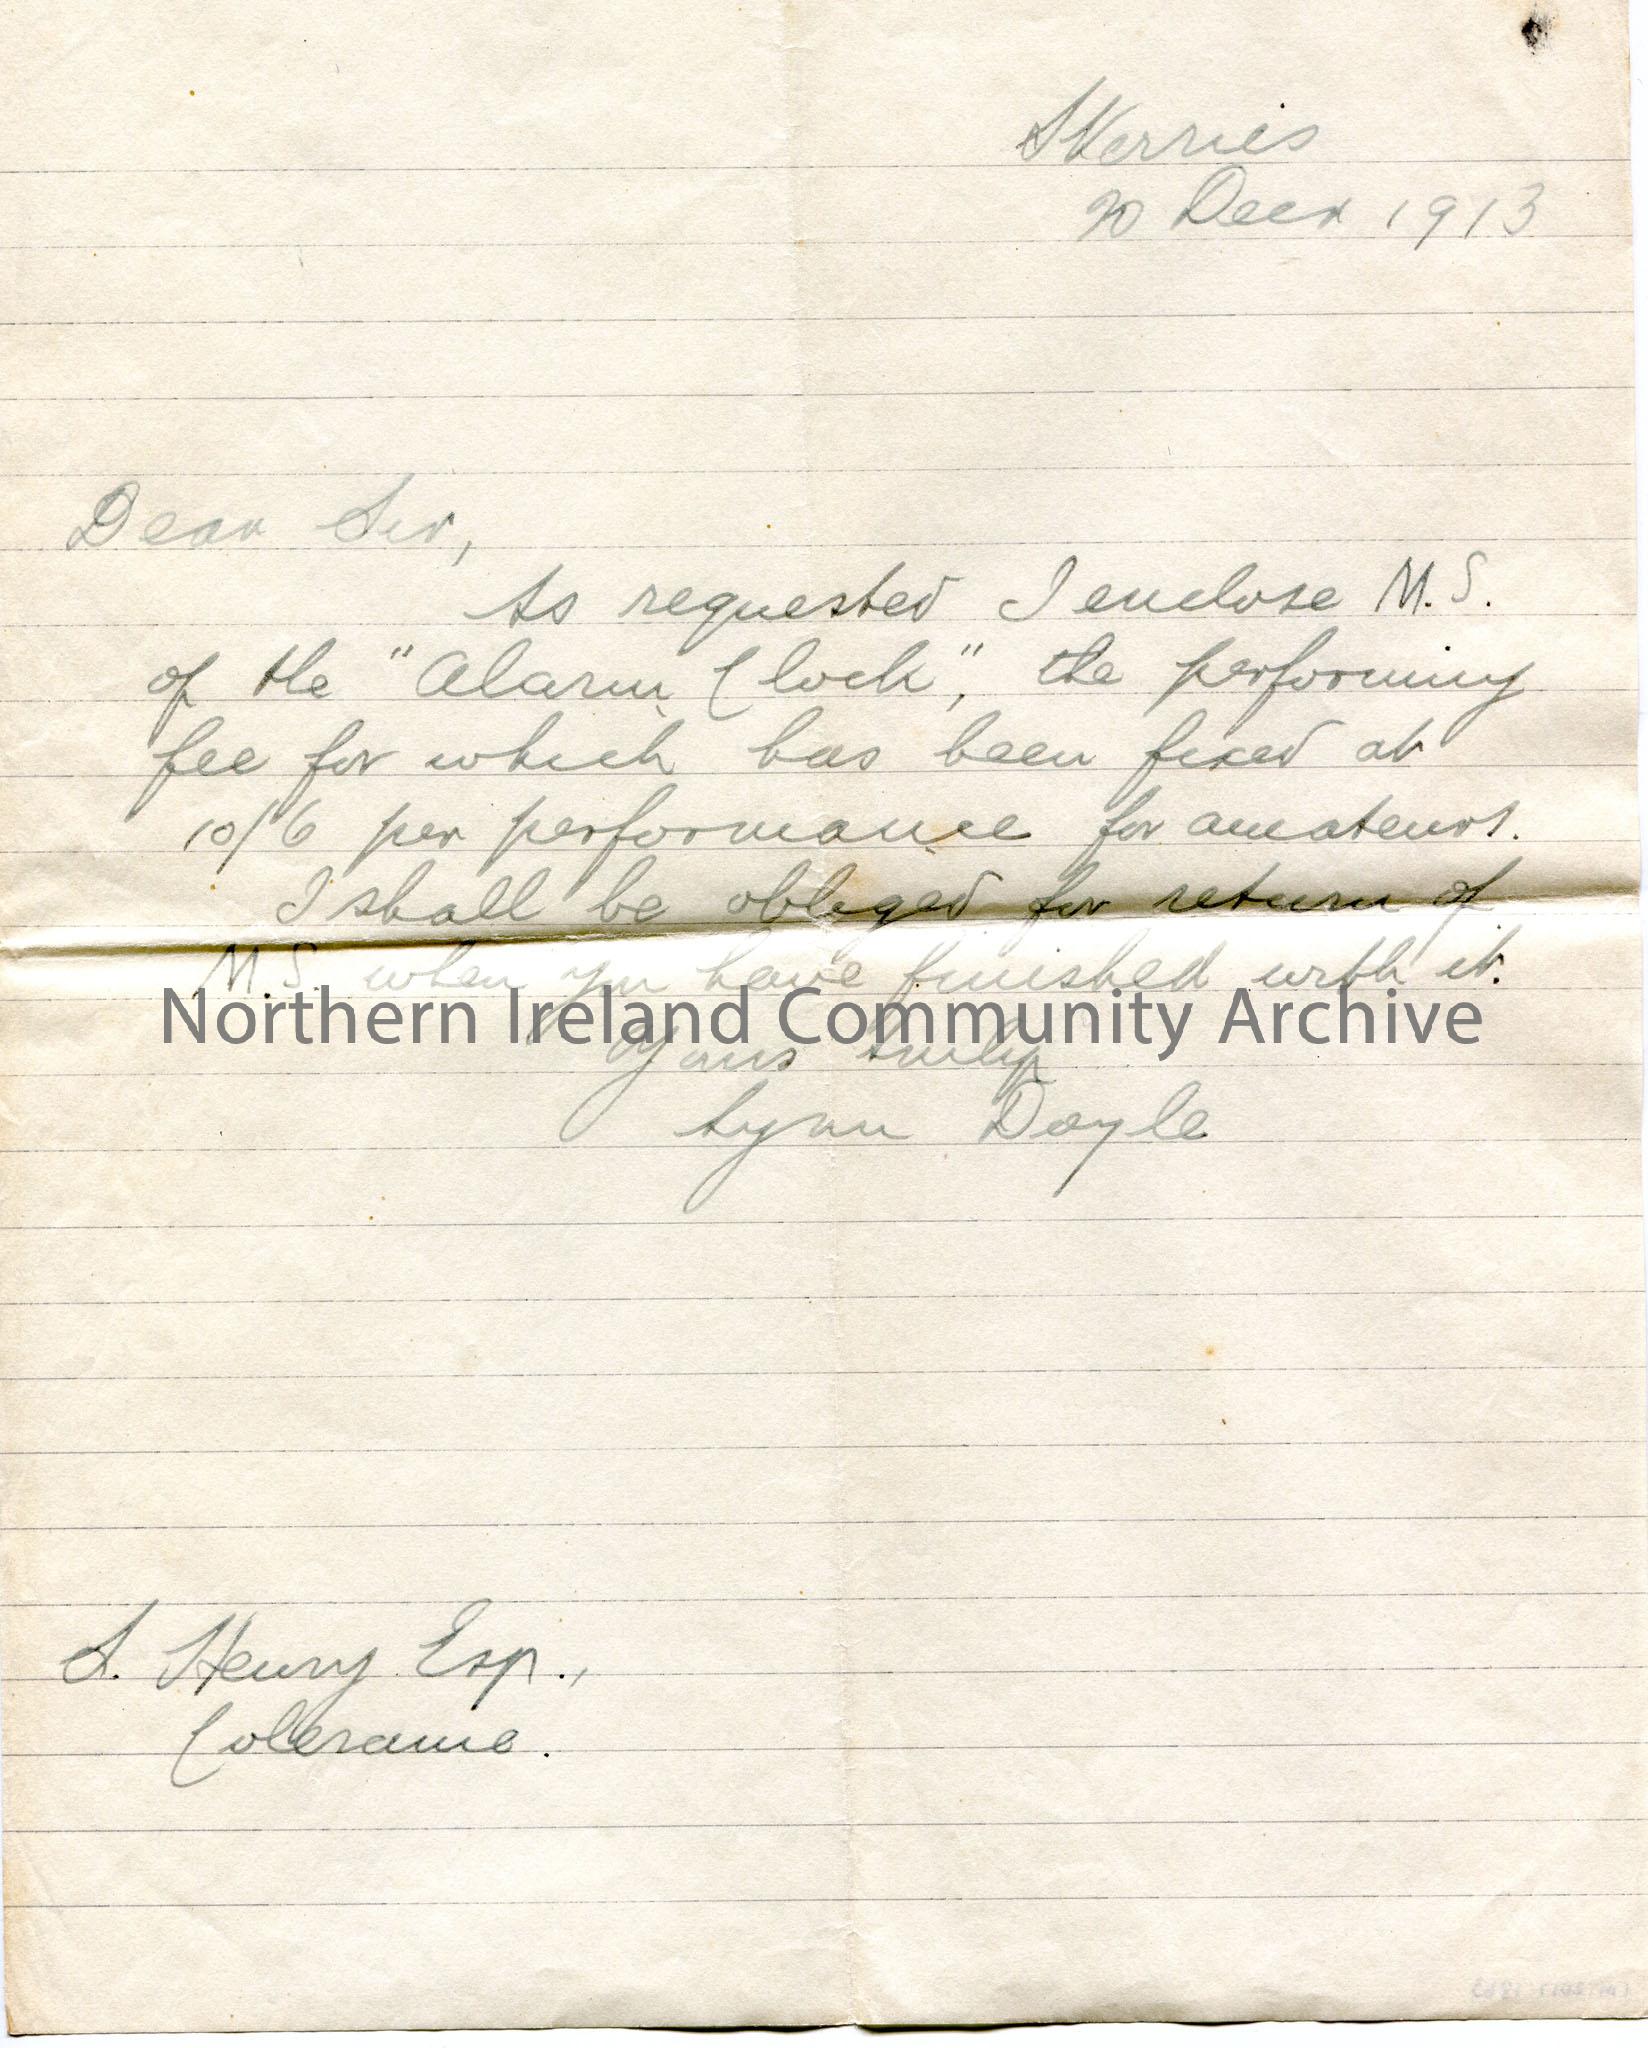 Skerries
20 Decr 1913
Dear Sir,
As requested I enclose M.S.
of the "Alarm Clock", the performing
fee for which has been fixed at
10/6 per performance for amateurs.
I shall be obliged for return of
M.S. when you have finished with it.
Northern Ireland Community Archive
Yours truly
Lynn Doyle
S. Henry Esq.,
Coleraine.